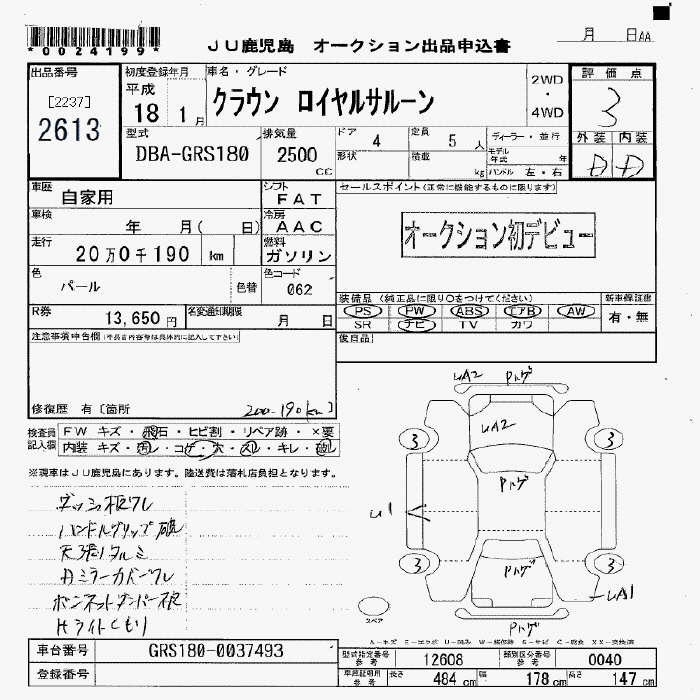 *0024199*
JU鹿児島 オークション出品申込書
月 日AA
出品番号
[2237]
2613
初度登録年月
平成
18 1月
車名・グレード
クラウン ロイヤルサルーン
2WD
・
4WD
評価点
3
外装 内装
D D
型式
DBA-GRS180
排気量
2500
cc
ドア 4
定員 5 人
形状
積載 kg
ディーラー・並行
モデル年式 年
ハンドル 左・右
車歴
自家用
シフト
FAT
セールスポイント(正常に機能するものに限ります)
オークション初デビュー
車検
年 月( 日)
冷房
AAC
走行
20万0千190 km
燃料
ガソリン
色
パール
色替
色コード
062
装備品(純正品に限り○をつけてください)
新車保証書
PS PW ABS エアB AW
有・無
SR ナビ TV カワ
R券
13,650円
名変通知期限
月 日
後良品
注意事項申告欄
修復歴 有〔箇所
200-190km〕
検査員記入欄
FW キズ・飛石・ヒビ割・リペア跡・×要
内装 キズ・汚レ・コゲ・穴・スレ・キレ・破レ
※現車はJU鹿児島にあります。陸送費は落札店負担となります。
ダッシュ板ワレ
天張りタルミ
UA2 Pハゲ
UA2
3 3
Pハゲ
U1
3 3
Pハゲ
UA1
スペア
Pハゲ
車台番号
GRS180-0037493
登録番号
型式指定番号
参考
12608
類別区分番号
参考
0040
長さ 484 cm
幅 178 cm
高さ 147 cm